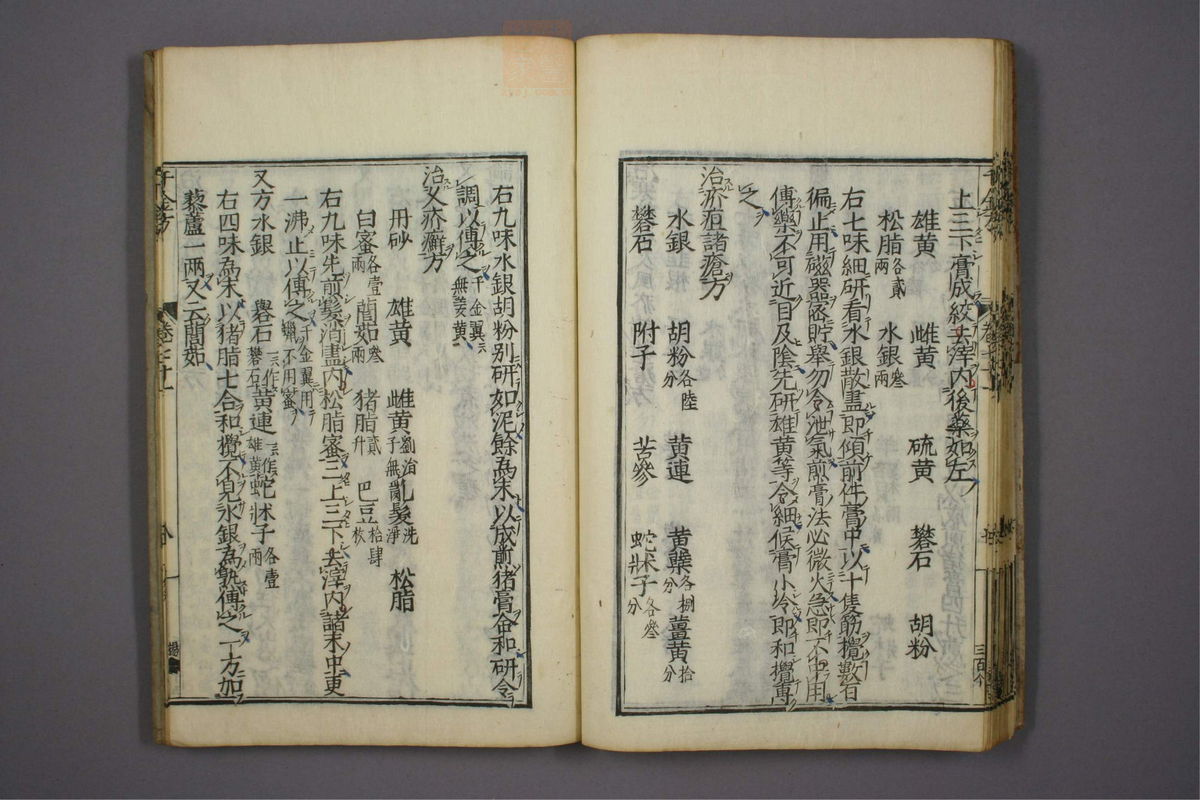 上三下膏成絞去滓内後藥如左
雄黄 雌黄 硫黄 礬石 胡粉
松脂各貳兩 水銀叁兩
右七味細研看水銀散盡即傾前件膏中以十隻筯攪數百
徧止用磁器貯舉勿令泄氣煎膏法必微火急即不中用
傅藥不可近目及陰先研雄黄等令細候膏小冷即和攪傅
之
治疥疽諸瘡方
水銀 胡粉各陸分 黄連 黄蘗各捌分 薑黄拾分
礬石 附子 苦參 蛇牀子各叁分
右九味水銀胡粉别研如泥餘為末以成煎猪膏合和研令
調以傅之千金翼云無姜黄
治久疥癬方
丹砂 雄黄 雌黄劉治子無 亂髮洗淨 松脂
白蜜各壹兩 䕡茹叁兩 猪脂貳升 巴豆拾肆枚
右九味先煎髮消盡内松脂蜜三上三下去滓内諸末中更
一沸止以傅之千金翼用蠟不用蜜
又方水銀 礜石一云作礬石 黄連一云作雄黄 蛇牀子各壹兩
右四味為末以猪脂七合和攪不見水銀為熟傅之一方加
藜蘆一兩又云䕡茹
千金方
卷二十一